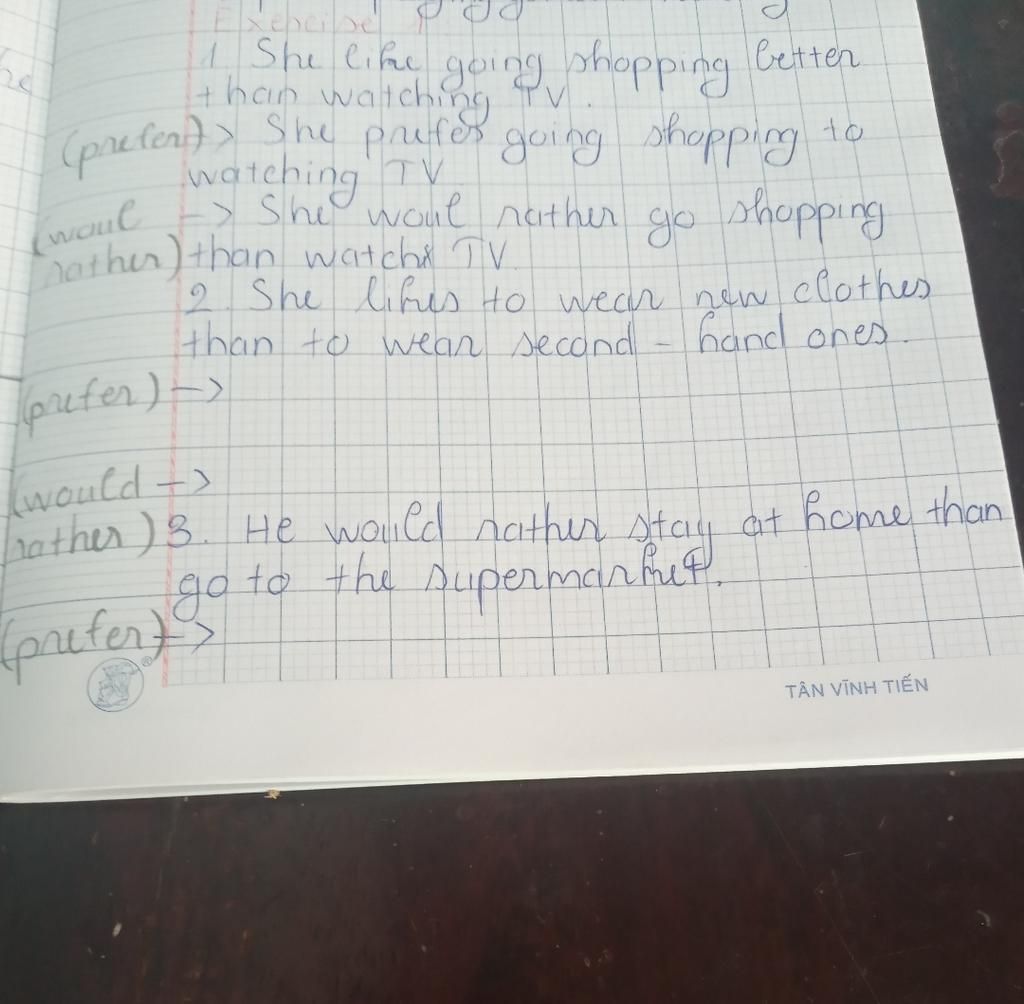 Exercise 1
1. She like going shopping better
than watching TV.
(prefer) -> She prefer going shopping to
watching TV
(woul rather) -> She woul rather go shopping
than watch TV.
2. She likes to wear new clothes
than to wear second - hand ones.
(prefer) ->
(would rather) ->
3. He would rather stay at home than
go to the supermarket.
(prefer) ->
TÂN VĨNH TIẾN